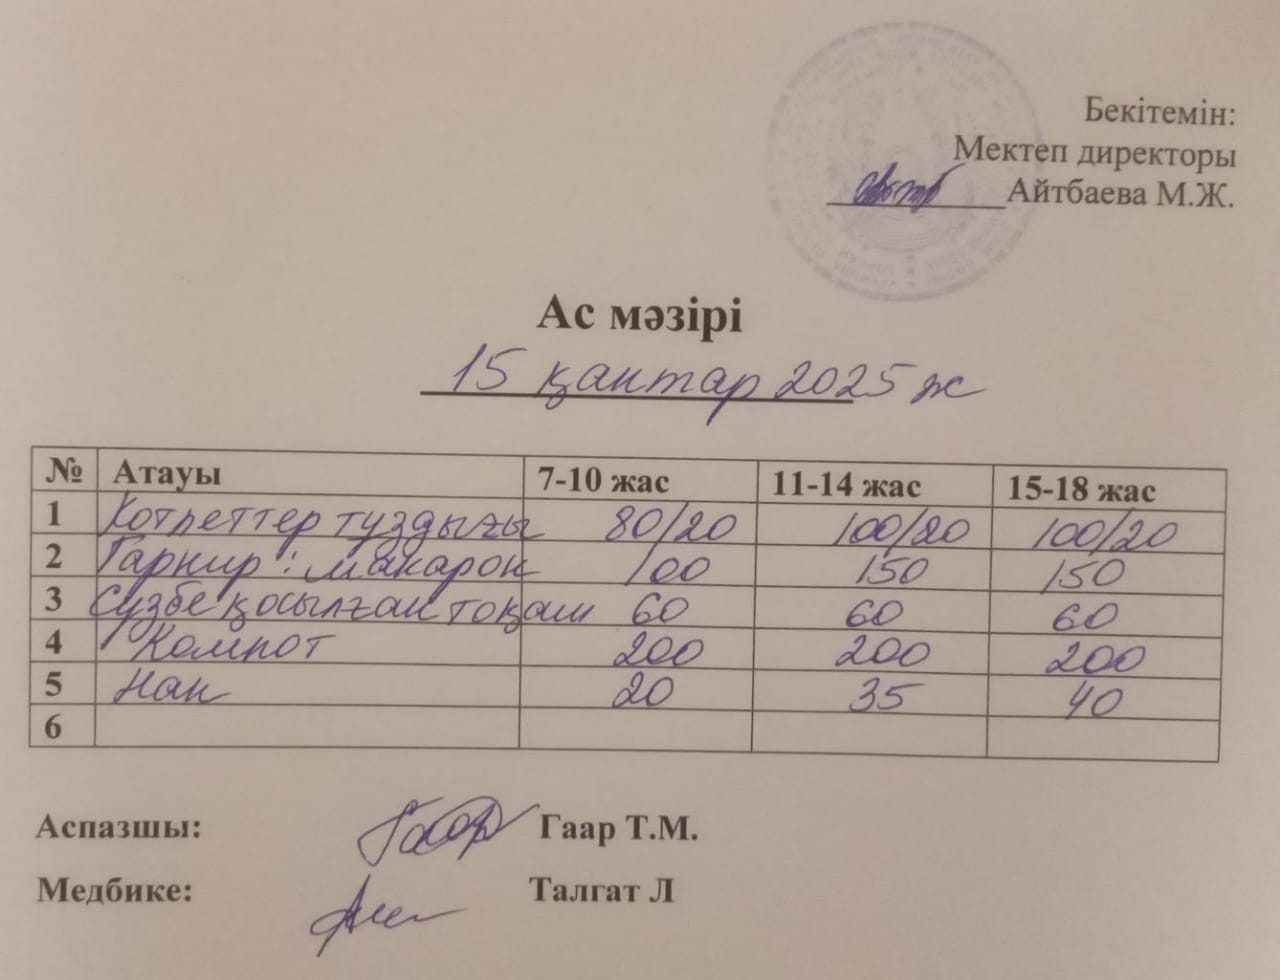 Бекітемін:
Мектеп директоры
Айтбаева М.Ж.
Ас мәзірі
15 қантар 2025 ж
№ Атауы 7-10 жас 11-14 жас 15-18 жас
1 Котлеттер тұздығы 80/20 100/20 100/20
2 Гарнир: макарон 100 150 150
3 Сүзбе қосылған тоқаш 60 60 60
4 Компот 200 200 200
5 Нан 20 35 40
6
Аспазшы: Гаар Т.М.
Медбике: Талгат Л